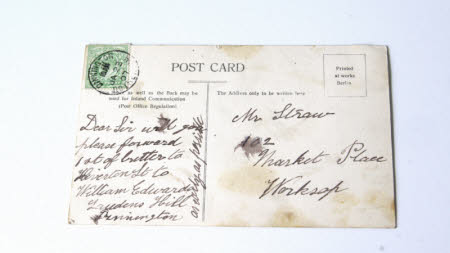 POST CARD
as well as the Back may be
used for Inland Communication
(Post Office Regulation)
The Address only to be written here
Printed
at works
Berlin
Dear Sir will you
please forward
1 st of butter to
Riverton St to
William Edwards
Hill
Dinnington
as well as
Mr Straw
102
Market Place
Worksop